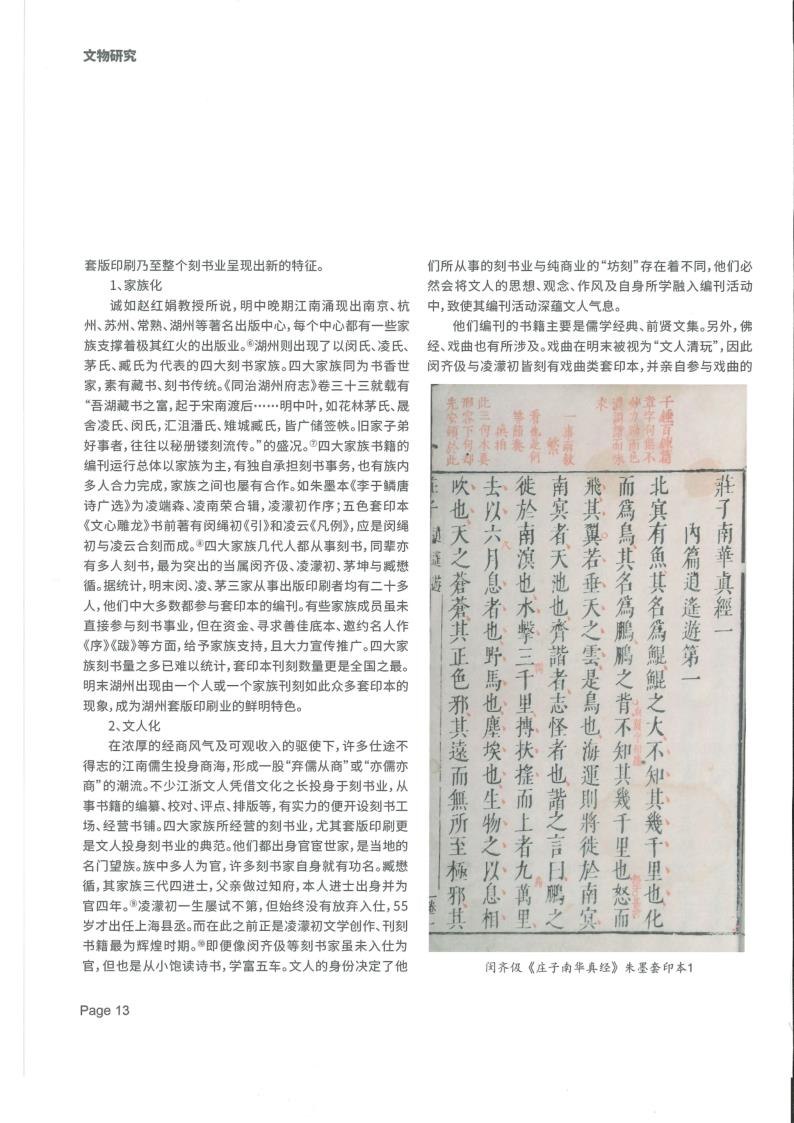 文物研究
套版印刷乃至整个刻书业呈现出新的特征。
1、家族化
诚如赵红娟教授所说，明中晚期江南涌现出南京、杭
州、苏州、常熟、湖州等著名出版中心，每个中心都有一些家
族支撑着极其红火的出版业。⑥湖州则出现了以闵氏、凌氏、
茅氏、臧氏为代表的四大刻书家族。四大家族同为书香世
家，素有藏书、刻书传统。《同治湖州府志》卷三十三就载有
“吾湖藏书之富，起于宋南渡后……明中叶，如花林茅氏、晟
舍凌氏、闵氏，汇沮潘氏、雉城臧氏，皆广储签帙。旧家子弟
好事者，往往以秘册镂刻流传。”的盛况。⑦四大家族书籍的
编刊运行总体以家族为主，有独自承担刻书事务，也有族内
多人合力完成，家族之间也屡有合作。如朱墨本《李于鳞唐
诗广选》为凌瑞森、凌南荣合辑，凌濛初作序；五色套印本
《文心雕龙》书前著有闵绳初《引》和凌云《凡例》，应是闵绳
初与凌云合刻而成。⑧四大家族几代人都从事刻书，同辈亦
有多人刻书，最为突出的当属闵齐伋、凌濛初、茅坤与臧懋
循。据统计，明末闵、凌、茅三家从事出版印刷者均有二十多
人，他们中大多数都参与套印本的编刊。有些家族成员虽未
直接参与刻书事业，但在资金、寻求善佳底本、邀约名人作
《序》《跋》等方面，给予家族支持，且大力宣传推广。四大家
族刻书量之多已难以统计，套印本刊刻数量更是全国之最。
明末湖州出现由一个人或一个家族刊刻如此众多套印本的
现象，成为湖州套版印刷业的鲜明特色。
2、文人化
在浓厚的经商风气及可观收入的驱使下，许多仕途不
得志的江南儒生投身商海，形成一股“弃儒从商”或“亦儒亦
商”的潮流。不少江浙文人凭借文化之长投身于刻书业，从
事书籍的编纂、校对、评点、排版等，有实力的便开设刻书工
场、经营书铺。四大家族所经营的刻书业，尤其套版印刷更
是文人投身刻书业的典范。他们都出身官宦世家，是当地的
名门望族。族中多人为官，许多刻书家自身就有功名。臧懋
循，其家族三代四进士，父亲做过知府，本人进士出身并为
官四年。⑨凌濛初一生屡试不第，但始终没有放弃入仕，55
岁才出任上海县丞。而在此之前正是凌濛初文学创作、刊刻
书籍最为辉煌时期。⑩即便像闵齐伋等刻书家虽未入仕为
官，但也是从小饱读诗书，学富五车。文人的身份决定了他
们所从事的刻书业与纯商业的“坊刻”存在着不同，他们必
然会将文人的思想、观念、作风及自身所学融入编刊活动
中，致使其编刊活动深蕴文人气息。
他们编刊的书籍主要是儒学经典、前贤文集。另外，佛
经、戏曲也有所涉及。戏曲在明末被视为“文人清玩”，因此
闵齐伋与凌濛初皆刻有戏曲类套印本，并亲自参与戏曲的
莊子南華真經一
内篇逍遙遊第一
北㝠有魚其名爲鯤鯤之大不知其幾千里也化
而爲鳥其名爲鵬鵬之背不知其幾千里也怒而
飛其翼若垂天之雲是鳥也海運則將徙於南㝠
南㝠者天池也齊諧者志怪者也諧之言曰鵬之
徙於南溟也水擊三千里搏扶搖而上者九萬里
去以六月息者也野馬也塵埃也生物之以息相
吹也天之蒼蒼其正色邪其遠而無所至極邪其
闵齐伋《庄子南华真经》朱墨套印本1
Page 13